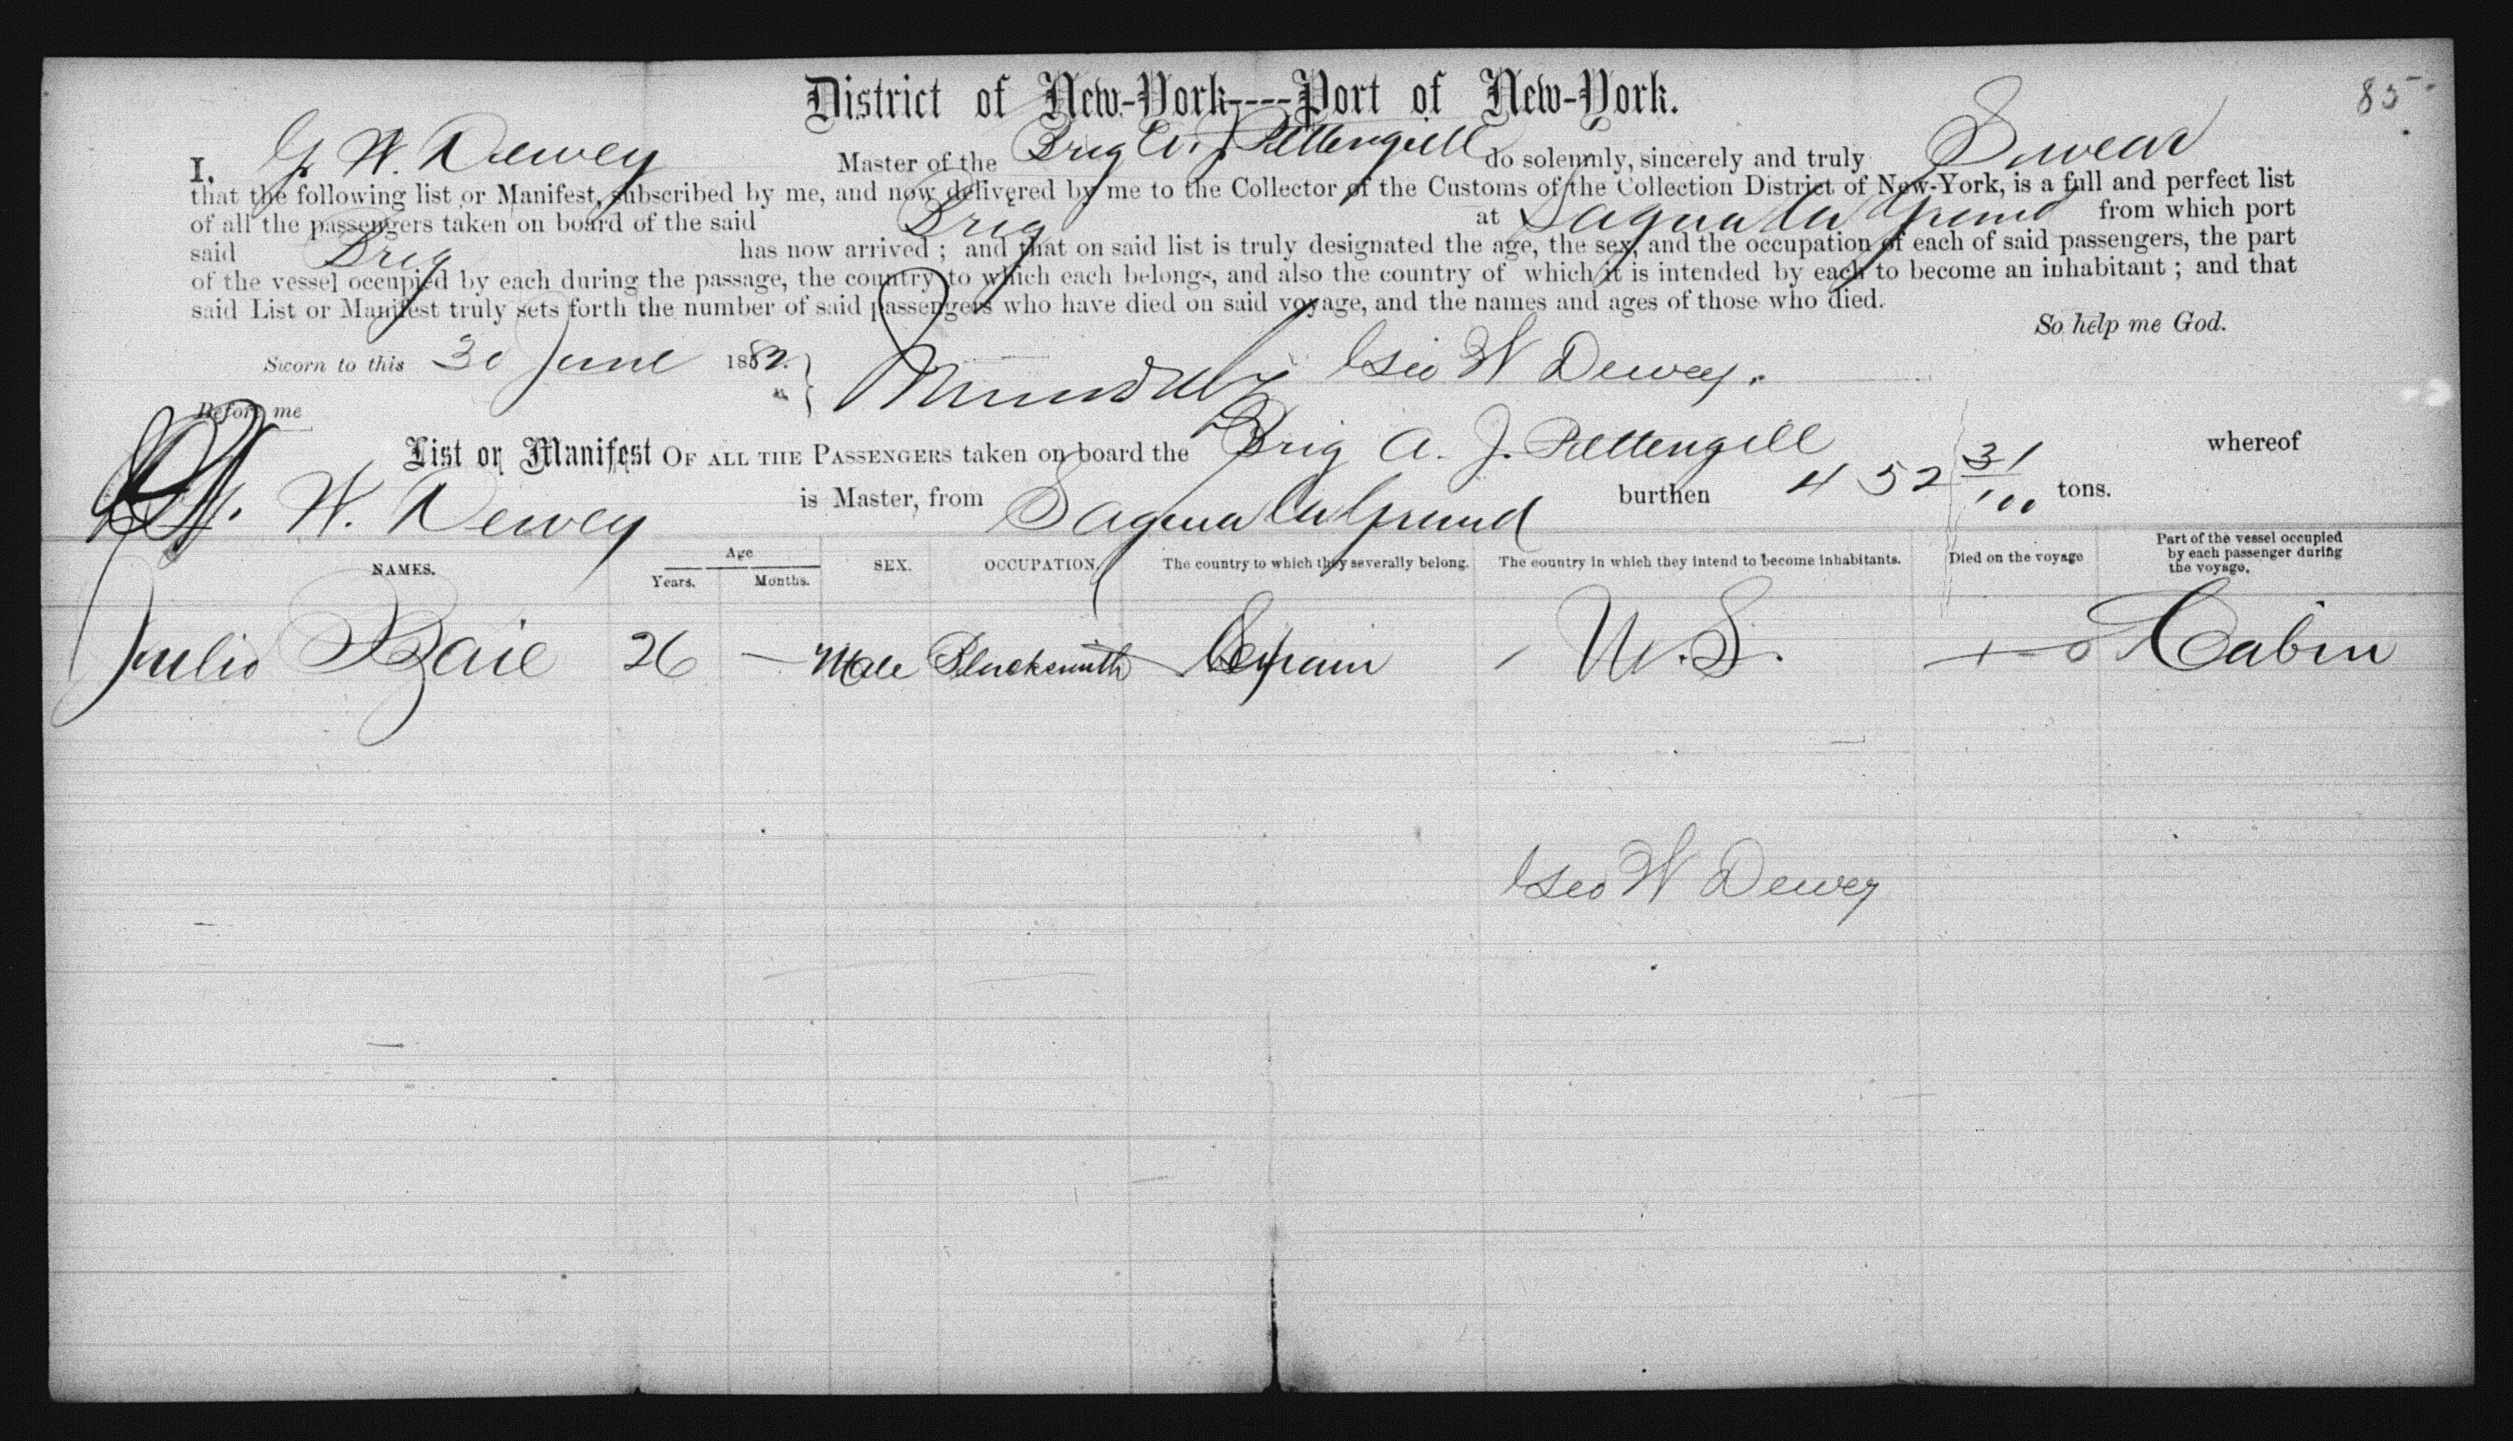 85
District of New-York----Port of New-York.
I, G. W. Dewey Master of the Brig A. J. Pettengill do solemnly, sincerely and truly Swear
that the following list or Manifest, subscribed by me, and now delivered by me to the Collector of the Customs of the Collection District of New-York, is a full and perfect list
of all the passengers taken on board of the said Brig at Sagua La Grand from which port
said Brig has now arrived ; and that on said list is truly designated the age, the sex, and the occupation of each of said passengers, the part
of the vessel occupied by each during the passage, the country to which each belongs, and also the country of which it is intended by each to become an inhabitant ; and that
said List or Manifest truly sets forth the number of said passengers who have died on said voyage, and the names and ages of those who died.
So help me God.
Sworn to this 30 June 1882. Geo W Dewey.
Before me
List or Manifest OF ALL THE PASSENGERS taken on board the Brig A. J. Pettengill whereof
W. Dewey is Master, from Sagua La Grand burthen 452 31/100 tons.
NAMES. Age Years. Months. SEX. OCCUPATION. The country to which they severally belong. The country in which they intend to become inhabitants. Died on the voyage Part of the vessel occupied by each passenger during the voyage.
Julio 26 — Male Blacksmith Spain U.S. Cabin
Geo W Dewey